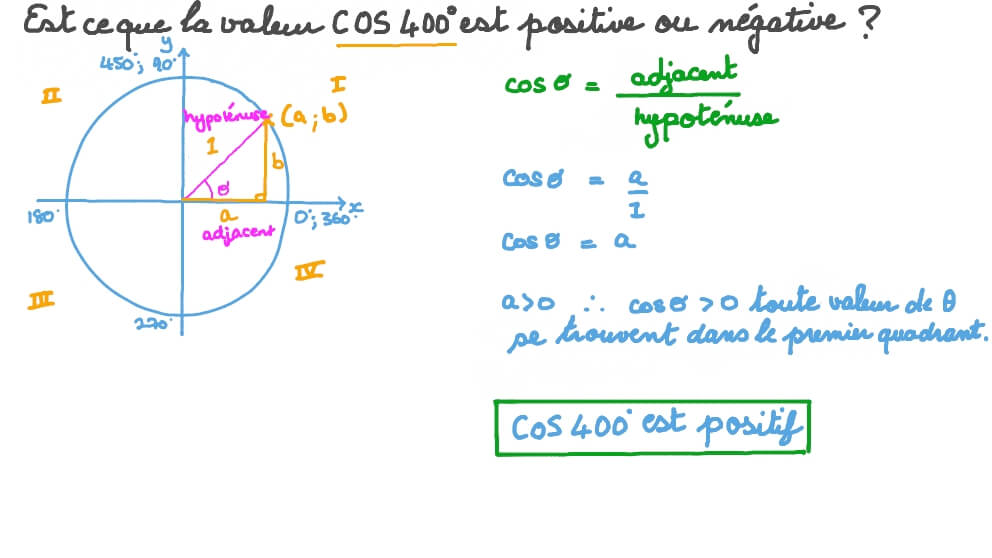 Est ce que la valeur COS 400° est positive ou négative ?
y
450°; 90°
II
I
hypoténuse
(a;b)
1
b
θ
180°
a
0°; 360°
x
adjacent
III
IV
270°
cos θ = adjacent
hypoténuse
cos θ = a
1
cos θ = a
a>0 ∴ cos θ >0 toute valeur de θ
se trouvent dans le premier quadrant.
COS 400° est positif